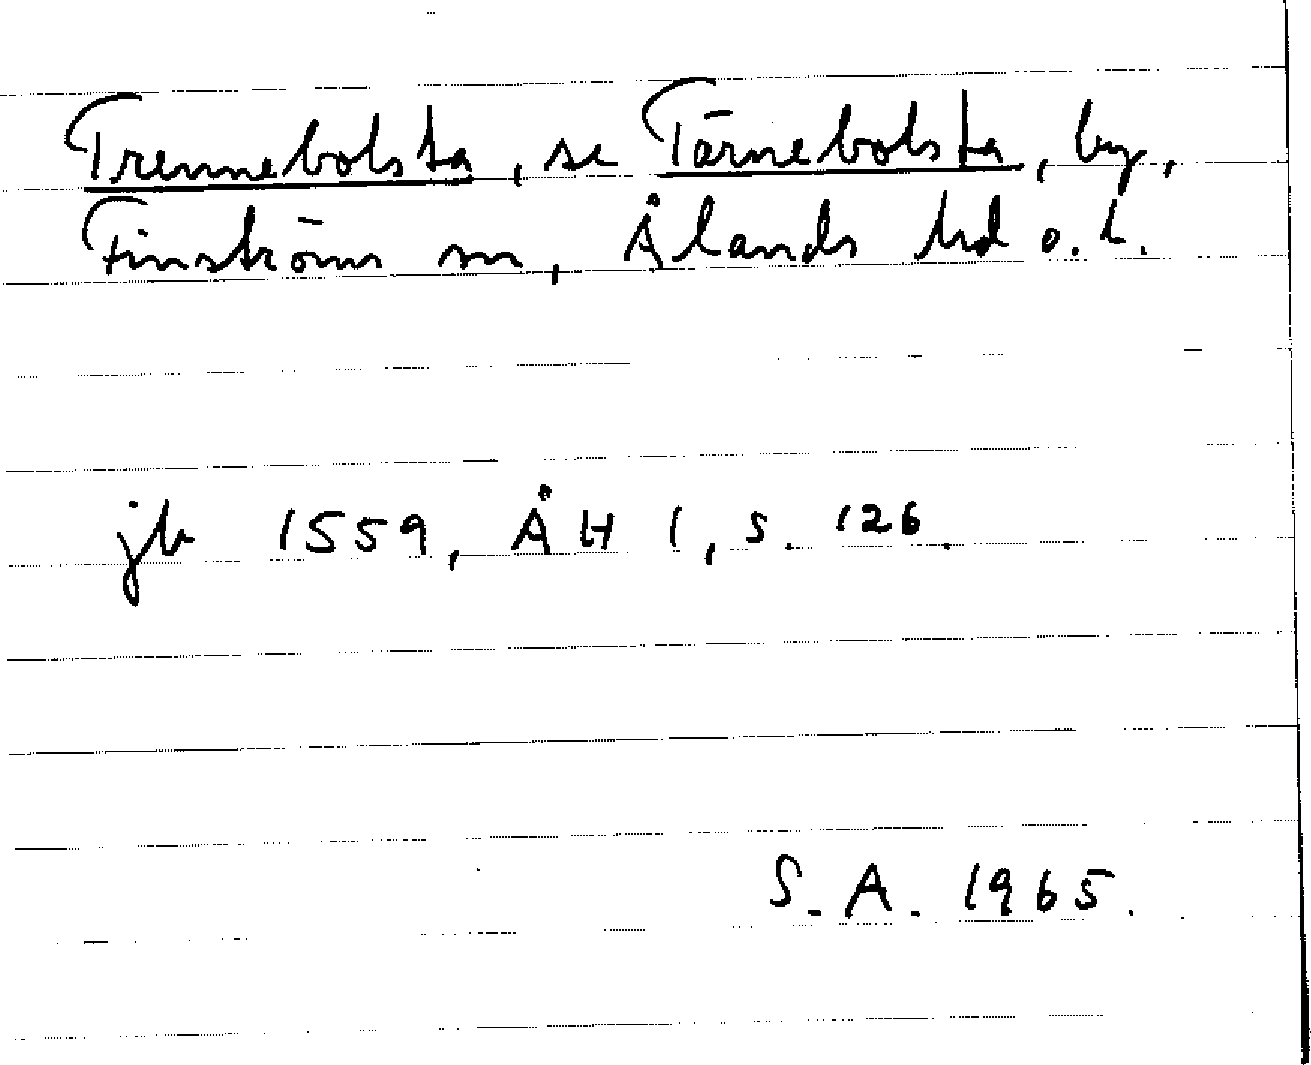 Trennebolsta, se Tärnebolsta, by,
Finströms sn, Ålands hd o. L.
jb 1559, ÅH 1, s. 126.
S.A. 1965.